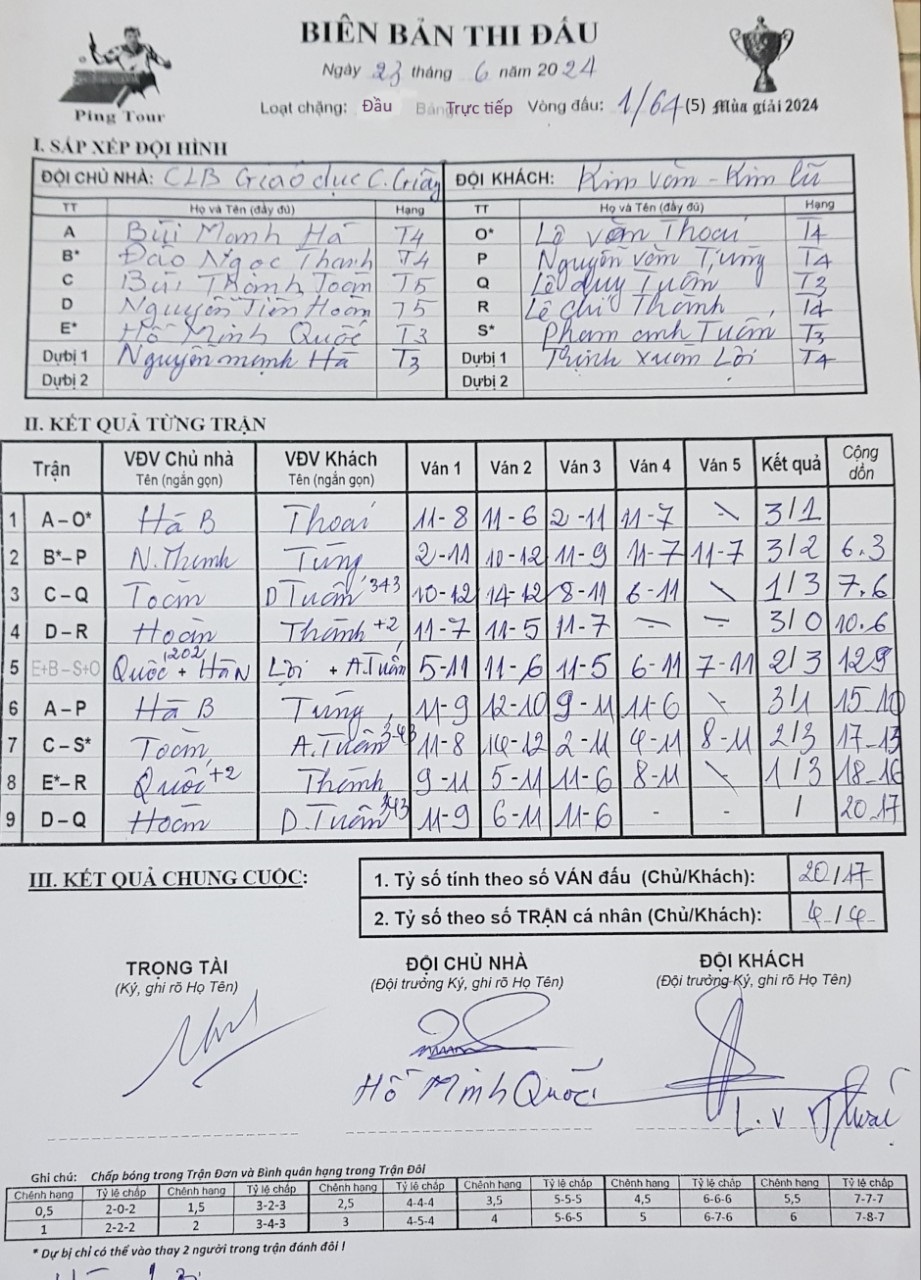 BIÊN BẢN THI ĐẤU
Ping Tour
Ngày 23 tháng 6 năm 2024
Loạt chặng: Đầu Bảng Trực tiếp Vòng đấu: 1/64 (5) Mùa giải 2024
I. SẮP XẾP ĐỘI HÌNH
ĐỘI CHỦ NHÀ: CLB Giáo dục C. Giấy ĐỘI KHÁCH: Kim Văn - Kim Lũ
TT Họ và Tên (đầy đủ) Hạng TT Họ và Tên (đầy đủ) Hạng
A Bùi Mạnh Hà T4 O* Lê Văn Thoại T4
B* Đào Ngọc Thanh T4 P Nguyễn Văn Tùng T4
C Bùi Thanh Toàn T5 Q Lê Duy Tuấn T3
D Nguyễn Tiến Hoàn T5 R Lê Chí Thành T4
E* Hồ Minh Quốc T3 S* Phạm Anh Tuấn T3
Dựbị 1 Nguyễn mạnh Hà T3 Dựbị 1 Thịnh Xuân Lời T4
Dựbị 2 Dựbị 2
II. KẾT QUẢ TỪNG TRẬN
Trận VĐV Chủ nhà Tên (ngắn gọn) VĐV Khách Tên (ngắn gọn) Ván 1 Ván 2 Ván 3 Ván 4 Ván 5 Kết quả Cộng dồn
1 A – O* Hà B Thoại 11-8 11-6 2-11 11-7 \ 3/1
2 B* – P N. Thanh Tùng 2-11 10-12 11-9 11-7 11-7 3/2 6.3
3 C – Q Toàn D Tuấn 343 10-12 14-12 8-11 6-11 \ 1/3 7.6
4 D – R Hoàn Thành +2 11-7 11-5 11-7 - - 3/0 10.6
5 E+B – S+O Quốc 202 + Hà N Lời + A.Tuấn 5-11 11-6 11-5 6-11 7-11 2/3 12.9
6 A – P Hà B Tùng 11-9 12-10 9-11 11-6 \ 3/1 15-10
7 C – S* Toàn A.Tuấn 3-43 11-8 14-12 2-11 4-11 8-11 2/3 17-13
8 E* – R Quốc +2 Thành 9-11 5-11 11-6 8-11 \ 1/3 18-16
9 D – Q Hoàn D.Tuấn 343 11-9 6-11 11-6 - - / 20.17
III. KẾT QUẢ CHUNG CUỘC:
1. Tỷ số tính theo số VÁN đấu (Chủ/Khách): 20/17
2. Tỷ số theo số TRẬN cá nhân (Chủ/Khách): 4/4
TRỌNG TÀI ĐỘI CHỦ NHÀ ĐỘI KHÁCH
(Ký, ghi rõ Họ Tên) (Đội trưởng Ký, ghi rõ Họ Tên) (Đội trưởng Ký, ghi rõ Họ Tên)
Hồ Minh Quốc
L.V Thoại
Ghi chú: Chấp bóng trong Trận Đơn và Bình quân hạng trong Trận Đôi
Chênh hạng Tỷ lệ chấp Chênh hạng Tỷ lệ chấp Chênh hạng Tỷ lệ chấp Chênh hạng Tỷ lệ chấp Chênh hạng Tỷ lệ chấp Chênh hạng Tỷ lệ chấp
0,5 2-0-2 1,5 3-2-3 2,5 4-4-4 3,5 5-5-5 4,5 6-6-6 5,5 7-7-7
1 2-2-2 2 3-4-3 3 4-5-4 4 5-6-5 5 6-7-6 6 7-8-7
* Dự bị chỉ có thể vào thay 2 người trong trận đánh đôi !